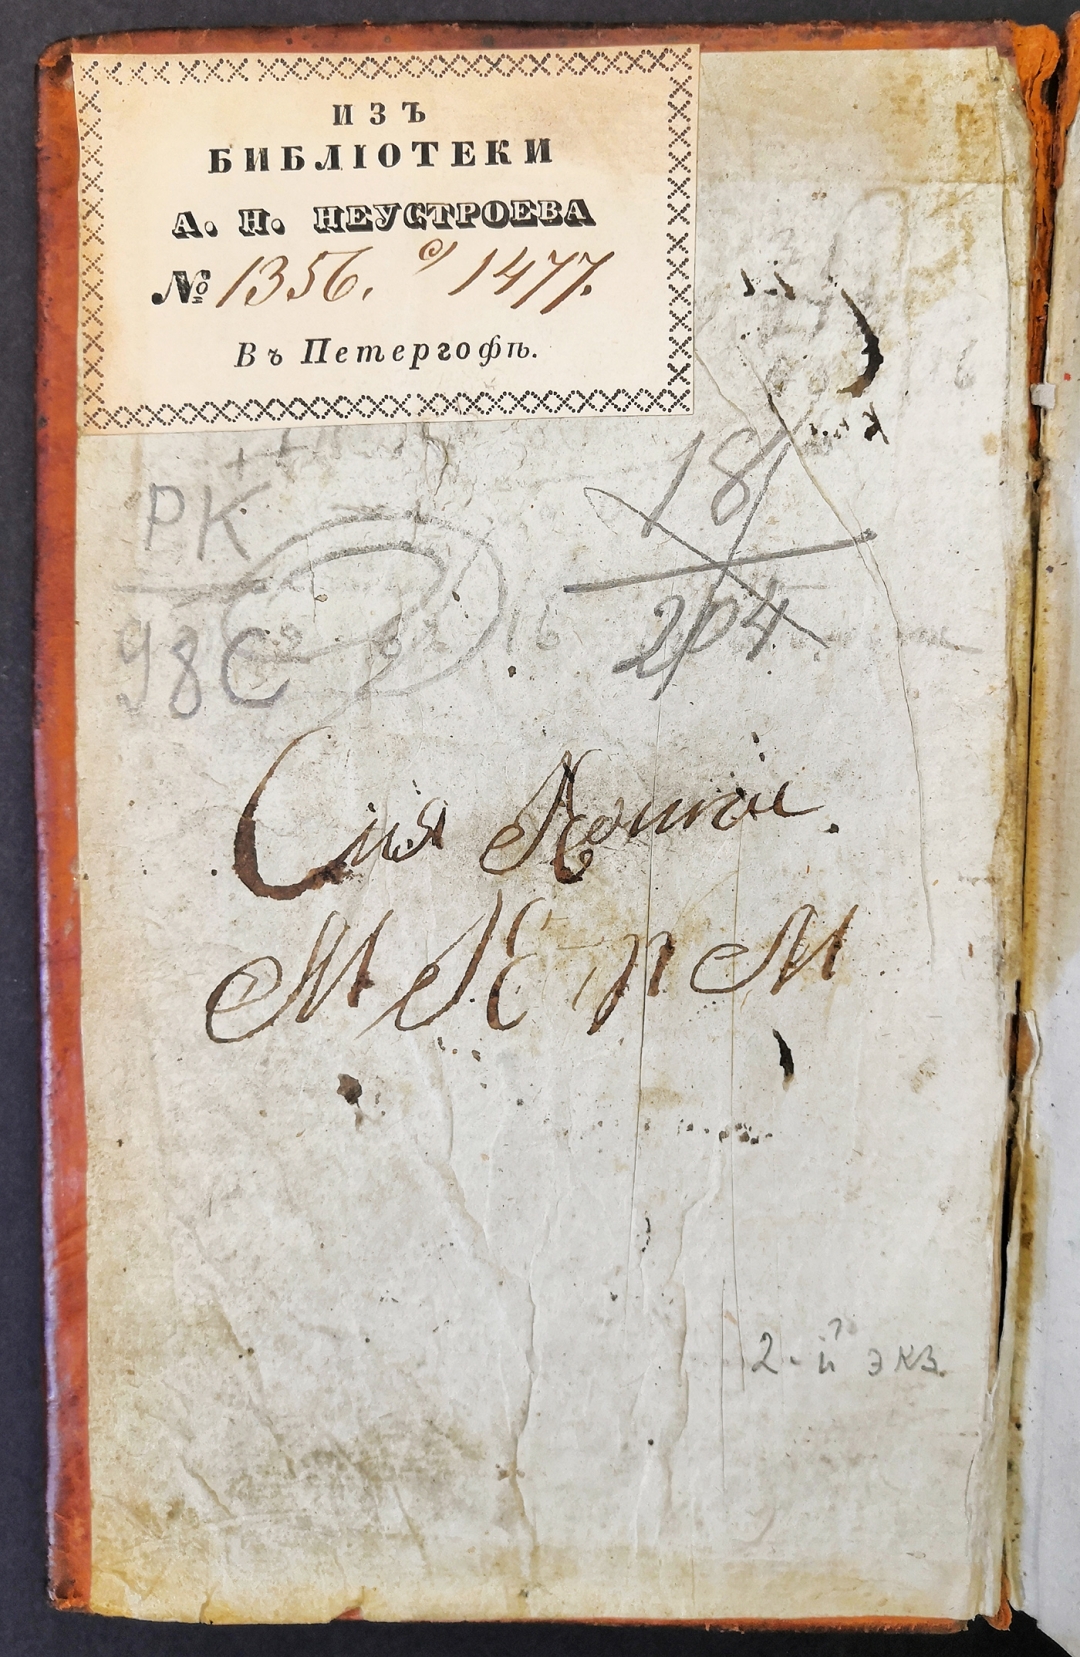 ИЗЪ
БИБЛІОТЕКИ
А. Н. НЕУСТРОЕВА
№ 1356. 1477.
Въ Петергофѣ.
РК
98
181
204
16
Сия
М К П М
2-й экз.